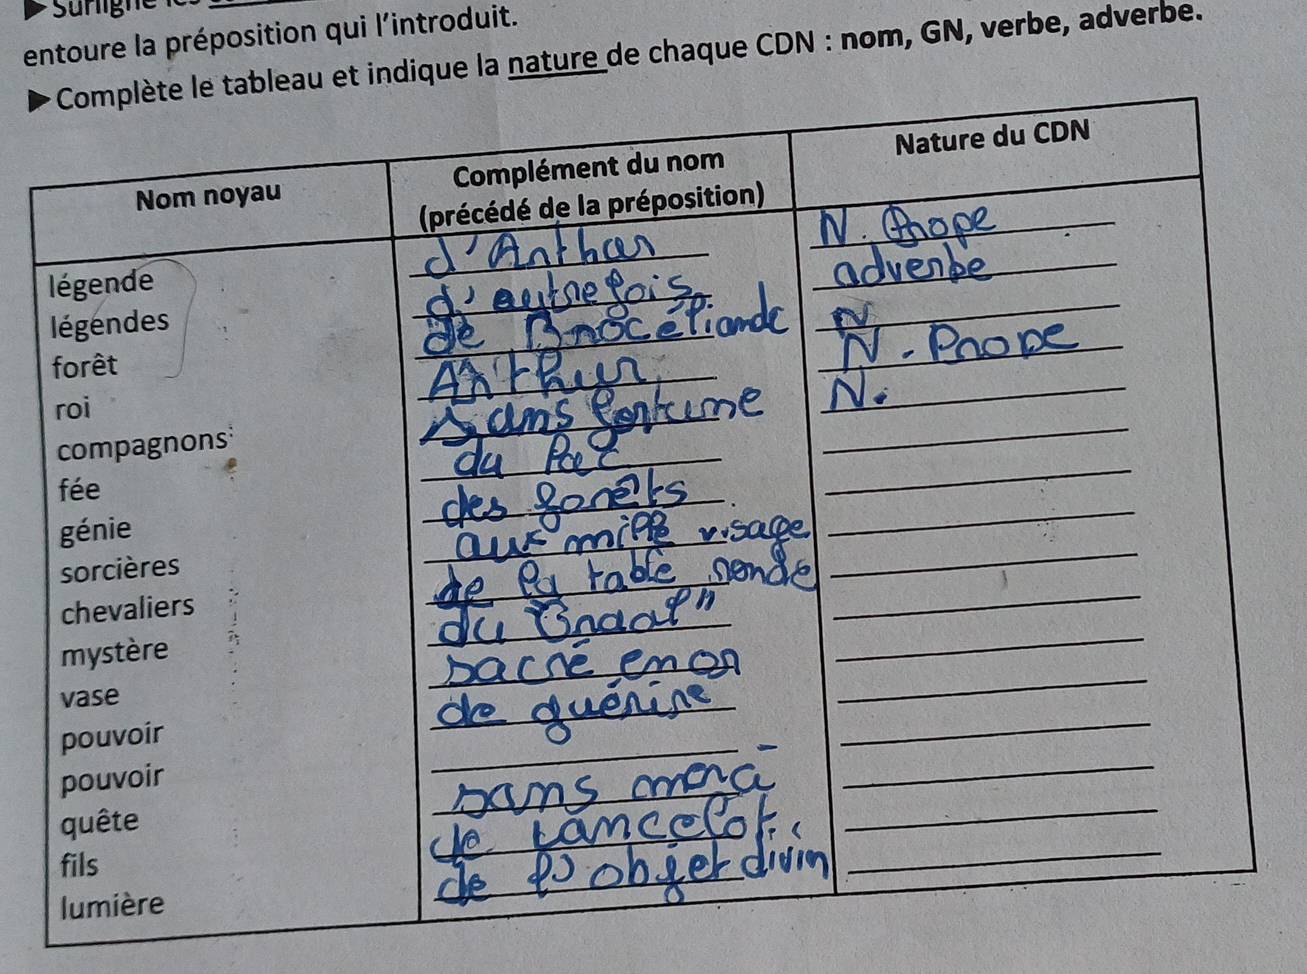 Surligne
entoure la préposition qui l'introduit.
▶ Complète le tableau et indique la nature de chaque CDN : nom, GN, verbe, adverbe.
Nom noyau
Complément du nom
(précédé de la préposition)
Nature du CDN
légende d'Arthur N. Prope
légendes d'autrefois adverbe
forêt de Brocéliande N
roi Arthur N. Prope
compagnons sans fortune N.
fée du
génie des forêts
sorcières aux mille visage
chevaliers de la table ronde
mystère du Graal"
vase sacré en or
pouvoir de guérire
pouvoir
quête sans
fils de Lancelot
lumière de l'objet divin